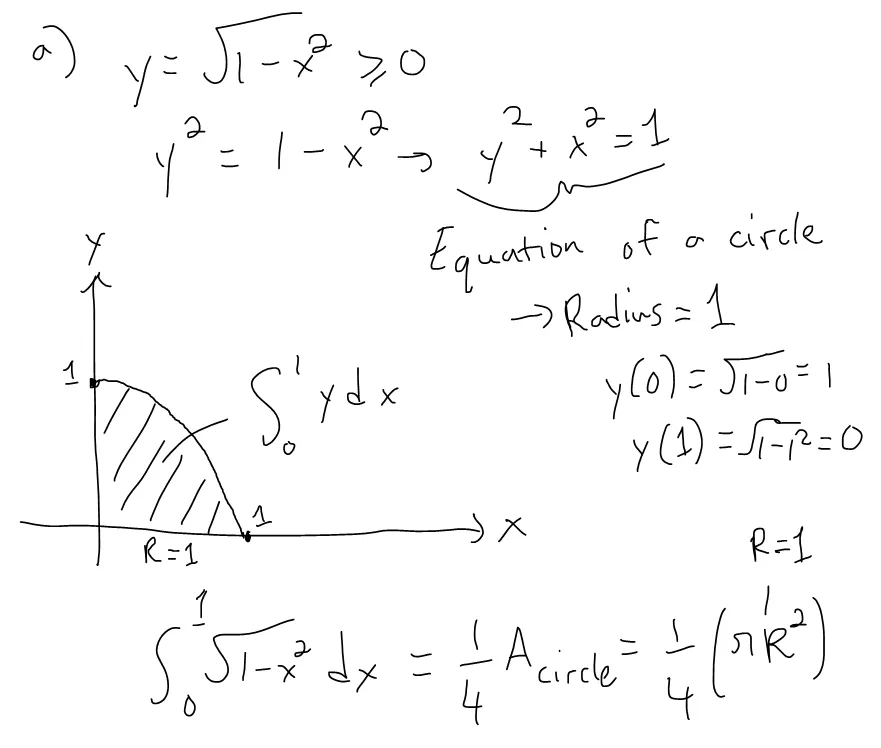 a) y = √(1 - x²) ≥ 0
y² = 1 - x² → y² + x² = 1
Equation of a circle
→ Radius = 1
y(0) = √(1-0) = 1
y(1) = √(1-1²) = 0
y
1
∫₀¹ y dx
1
x
R=1
R=1
∫₀¹ √(1-x²) dx = 1/4 A circle = 1/4 (πR²)